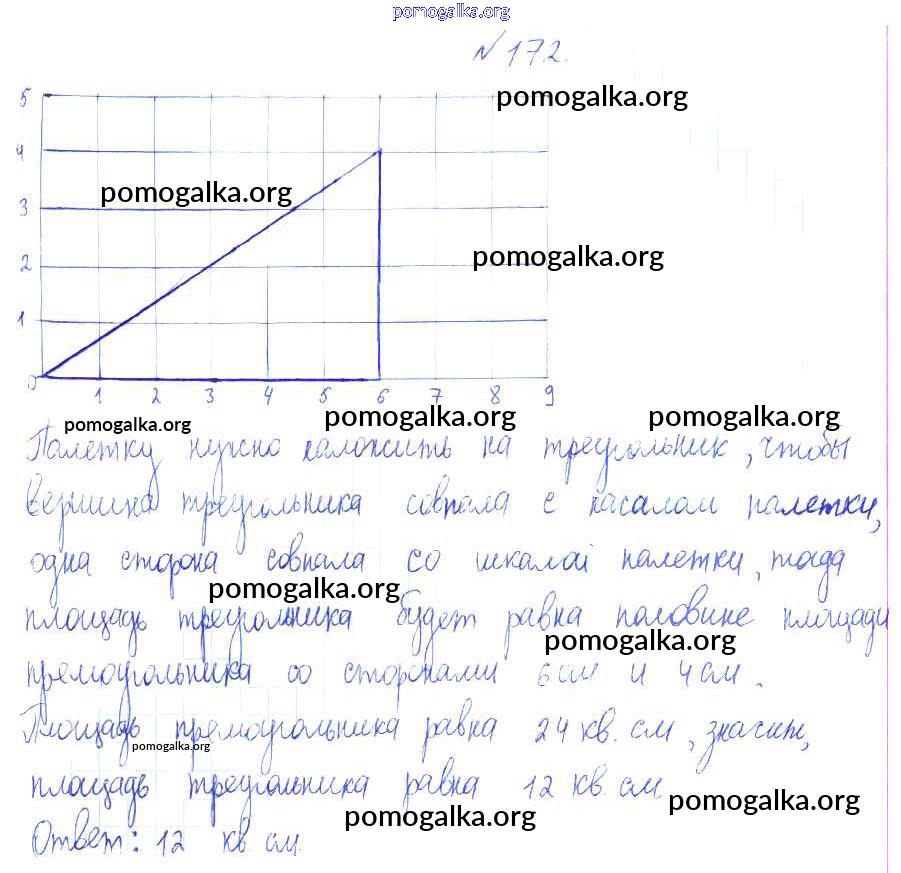 pomogalka.org
№ 172.
5
pomogalka.org
4
pomogalka.org
3
pomogalka.org
2
1
0 1 2 3 4 5 6 7 8 9
pomogalka.org pomogalka.org pomogalka.org
Палетку нужно наложить на треугольник, чтобы
вершина треугольника совпала с началом палетки,
одна сторона совпала со шкалой палетки, тогда
pomogalka.org
площадь треугольника будет равна половине площади
pomogalka.org
прямоугольника со сторонами 6 см и 4 см.
Площадь прямоугольника равна 24 кв. см, значит,
pomogalka.org
площадь треугольника равна 12 кв. см.
pomogalka.org pomogalka.org
Ответ: 12 кв см.